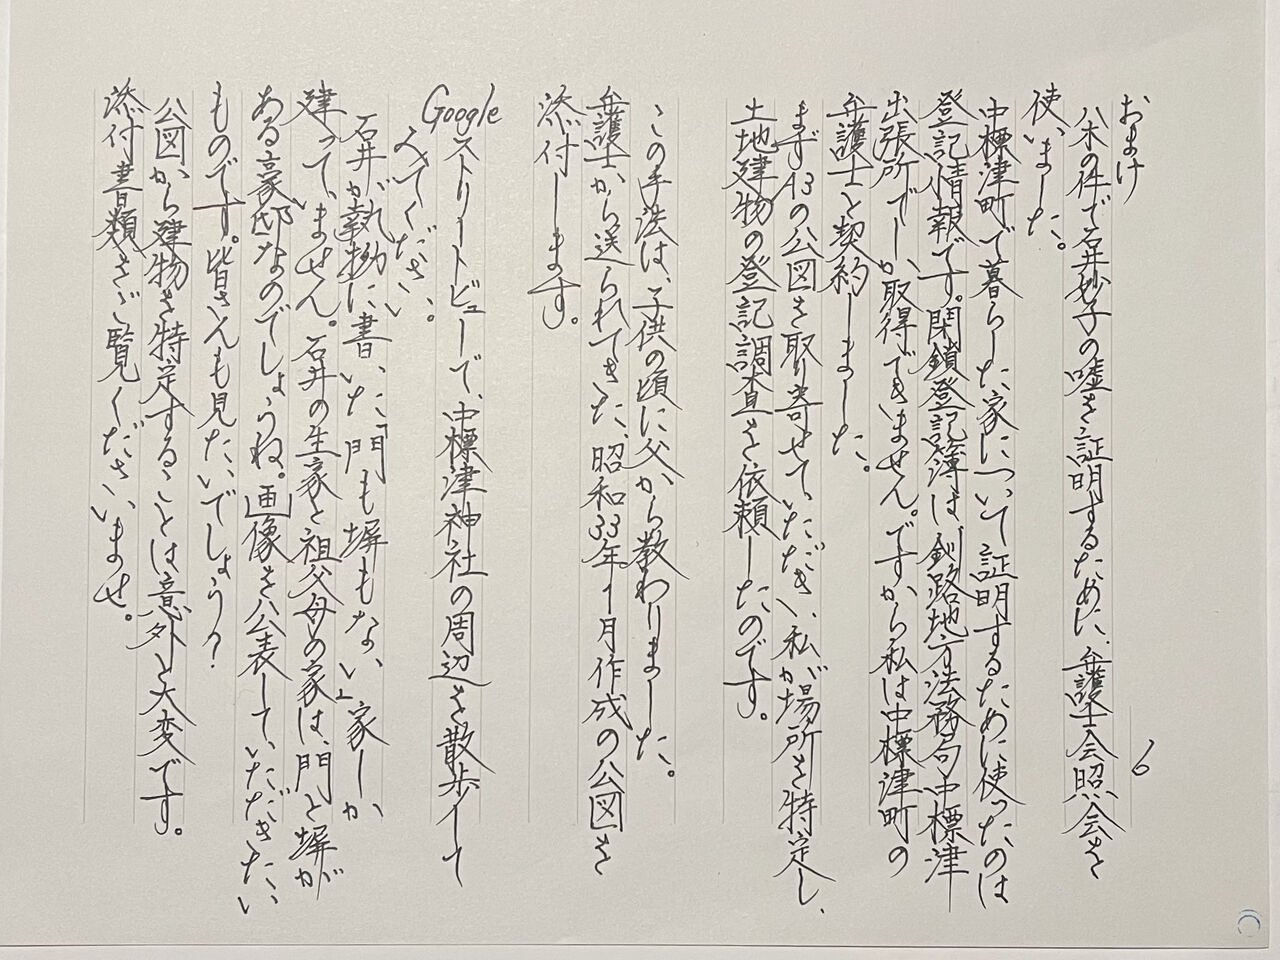 6
おまけ
八木の件で石井妙子の嘘を証明するために、弁護士会照会を
使いました。
中標津町で暮らした家について証明するために使ったのは
登記情報です。閉鎖登記簿は、釧路地方法務局中標津
出張所でしか取得できません。ですから私は中標津町の
弁護士と契約しました。
まずA3の公図を取り寄せていただき、私が場所を特定し、
土地建物の登記調査を依頼したのです。
この手法は、子供の頃に父から教わりました。
弁護士から送られてきた、昭和33年1月作成の公図を
添付します。
Googleストリートビューで、中標津神社の周辺を散歩して
みてください。
石井が執拗に書いた「門も塀もない」家しか
建っていません。石井の生家と祖父母の家は、門と塀が
ある豪邸なのでしょうね。画像を公表していただきたい
ものです。皆さんも見たいでしょう?
公図から建物を特定することは意外と大変です。
添付書類をご覧くださいませ。